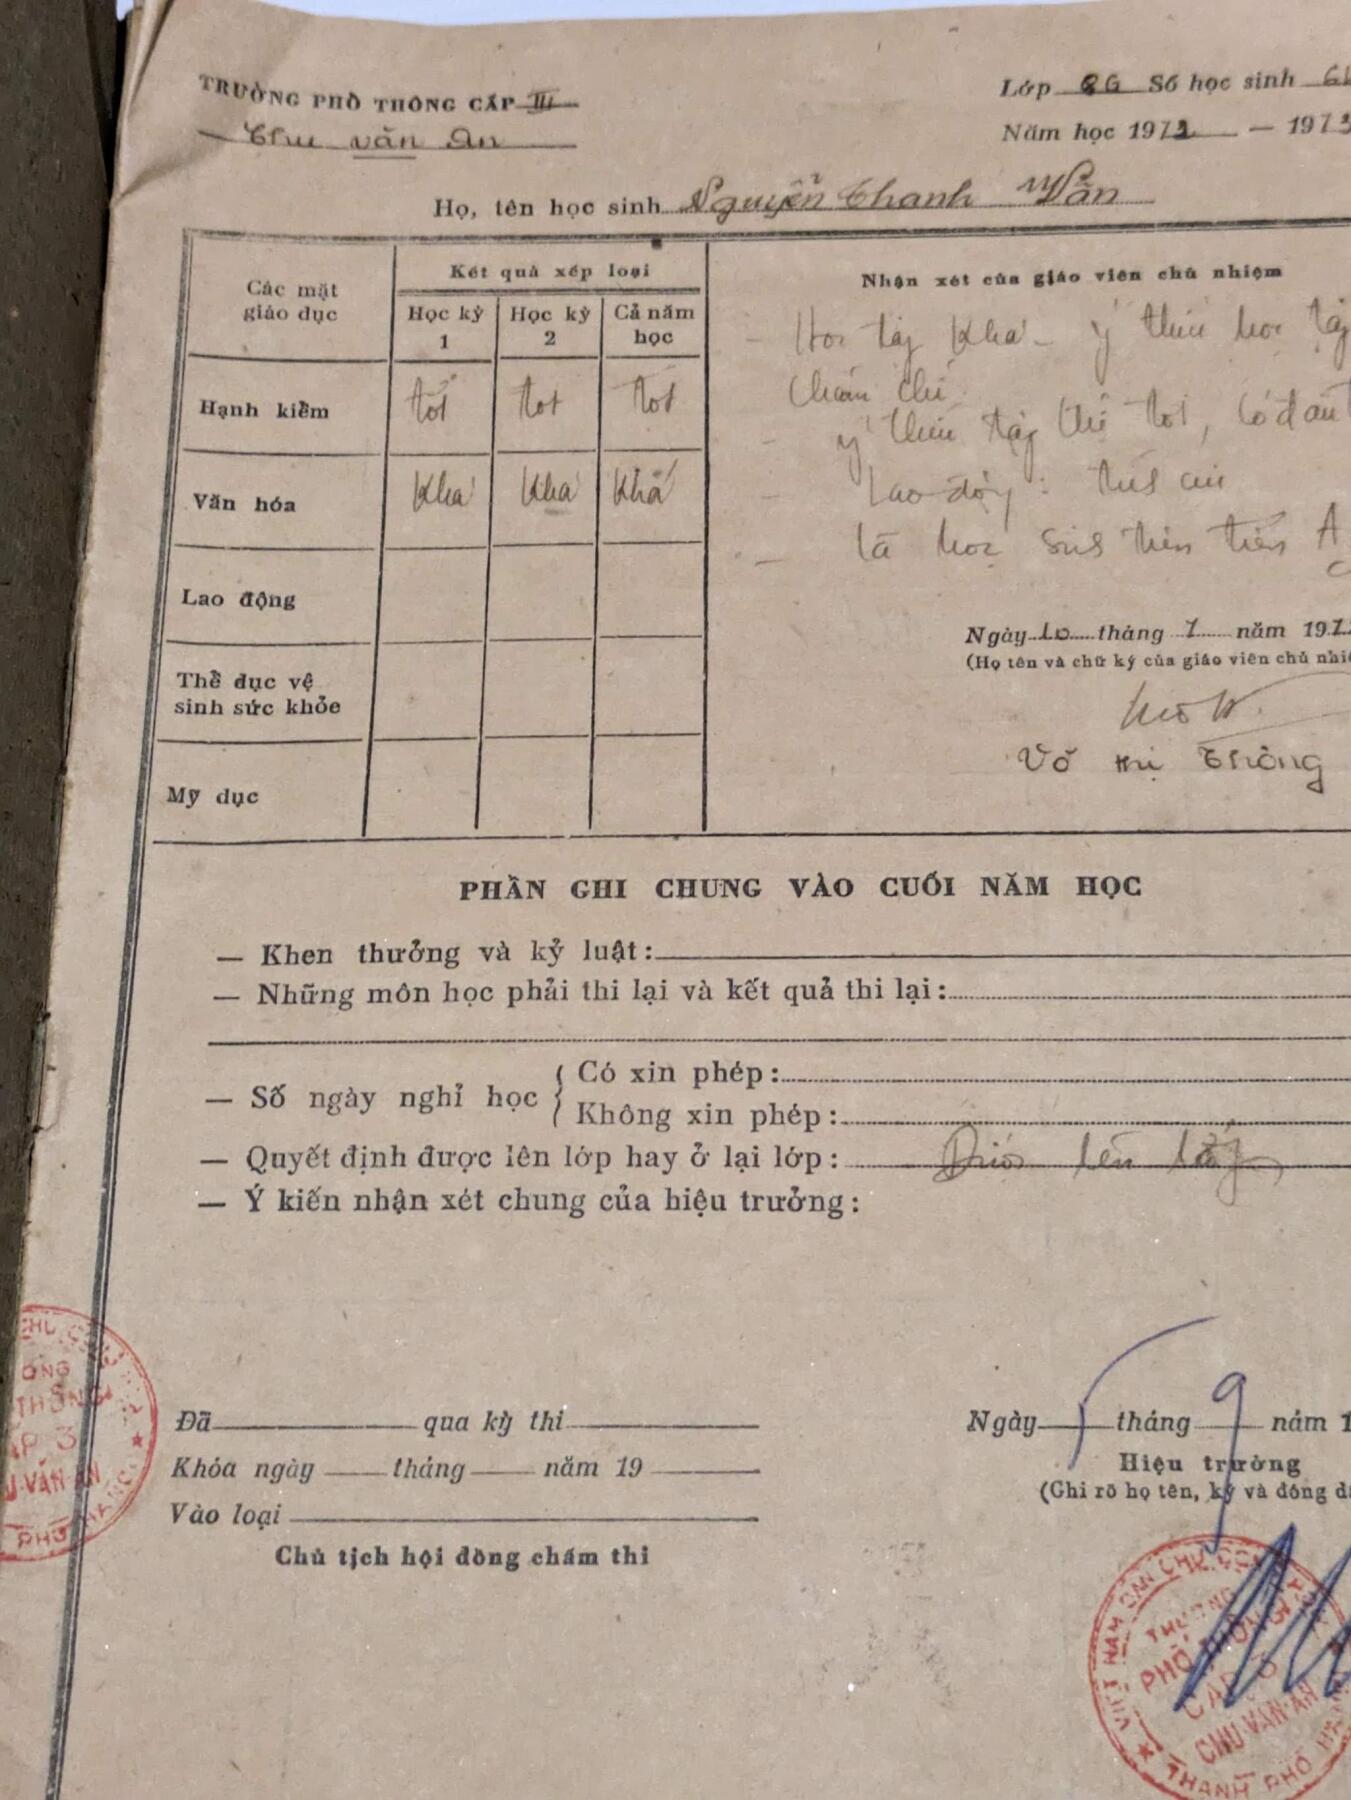 TRƯỜNG PHỔ THÔNG CẤP III
Chu văn An
Lớp 8G Số học sinh
Năm học 1972 — 1973
Họ, tên học sinh Nguyễn Thanh Vân
Các mặt giáo dục
Kết quả xếp loại
Học kỳ 1
Học kỳ 2
Cả năm học
Nhận xét của giáo viên chủ nhiệm
Hạnh kiểm tốt tot tot
Văn hóa Khá Khá Khá
Lao động
Thể dục vệ sinh sức khỏe
Mỹ dục
- Học tập Khá - ý thức học tập
chăm chỉ.
- ý thức tập thể tốt, có
- Lao động:
- là học sinh tiên tiến
Ngày 10 tháng 7 năm 197
(Họ tên và chữ ký của giáo viên chủ
Võ thị Thông
PHẦN GHI CHUNG VÀO CUỐI NĂM HỌC
— Khen thưởng và kỷ luật:
— Những môn học phải thi lại và kết quả thi lại:
— Số ngày nghỉ học { Có xin phép:
Không xin phép:
— Quyết định được lên lớp hay ở lại lớp: Được lên lớp
— Ý kiến nhận xét chung của hiệu trưởng:
Đã qua kỳ thi
Khóa ngày tháng năm 19
Vào loại
Chủ tịch hội đồng chấm thi
Ngày 5 tháng 9 năm 1
Hiệu trưởng
(Ghi rõ họ tên, ký và đóng
VIỆT NAM DÂN CHỦ CỘNG
TRƯỜNG
PHỔ THÔNG
CẤP 3
CHU VĂN AN
THÀNH PHỐ HÀ
THÔNG
CẤP 3
VĂN AN
PHỐ HÀ NỘI